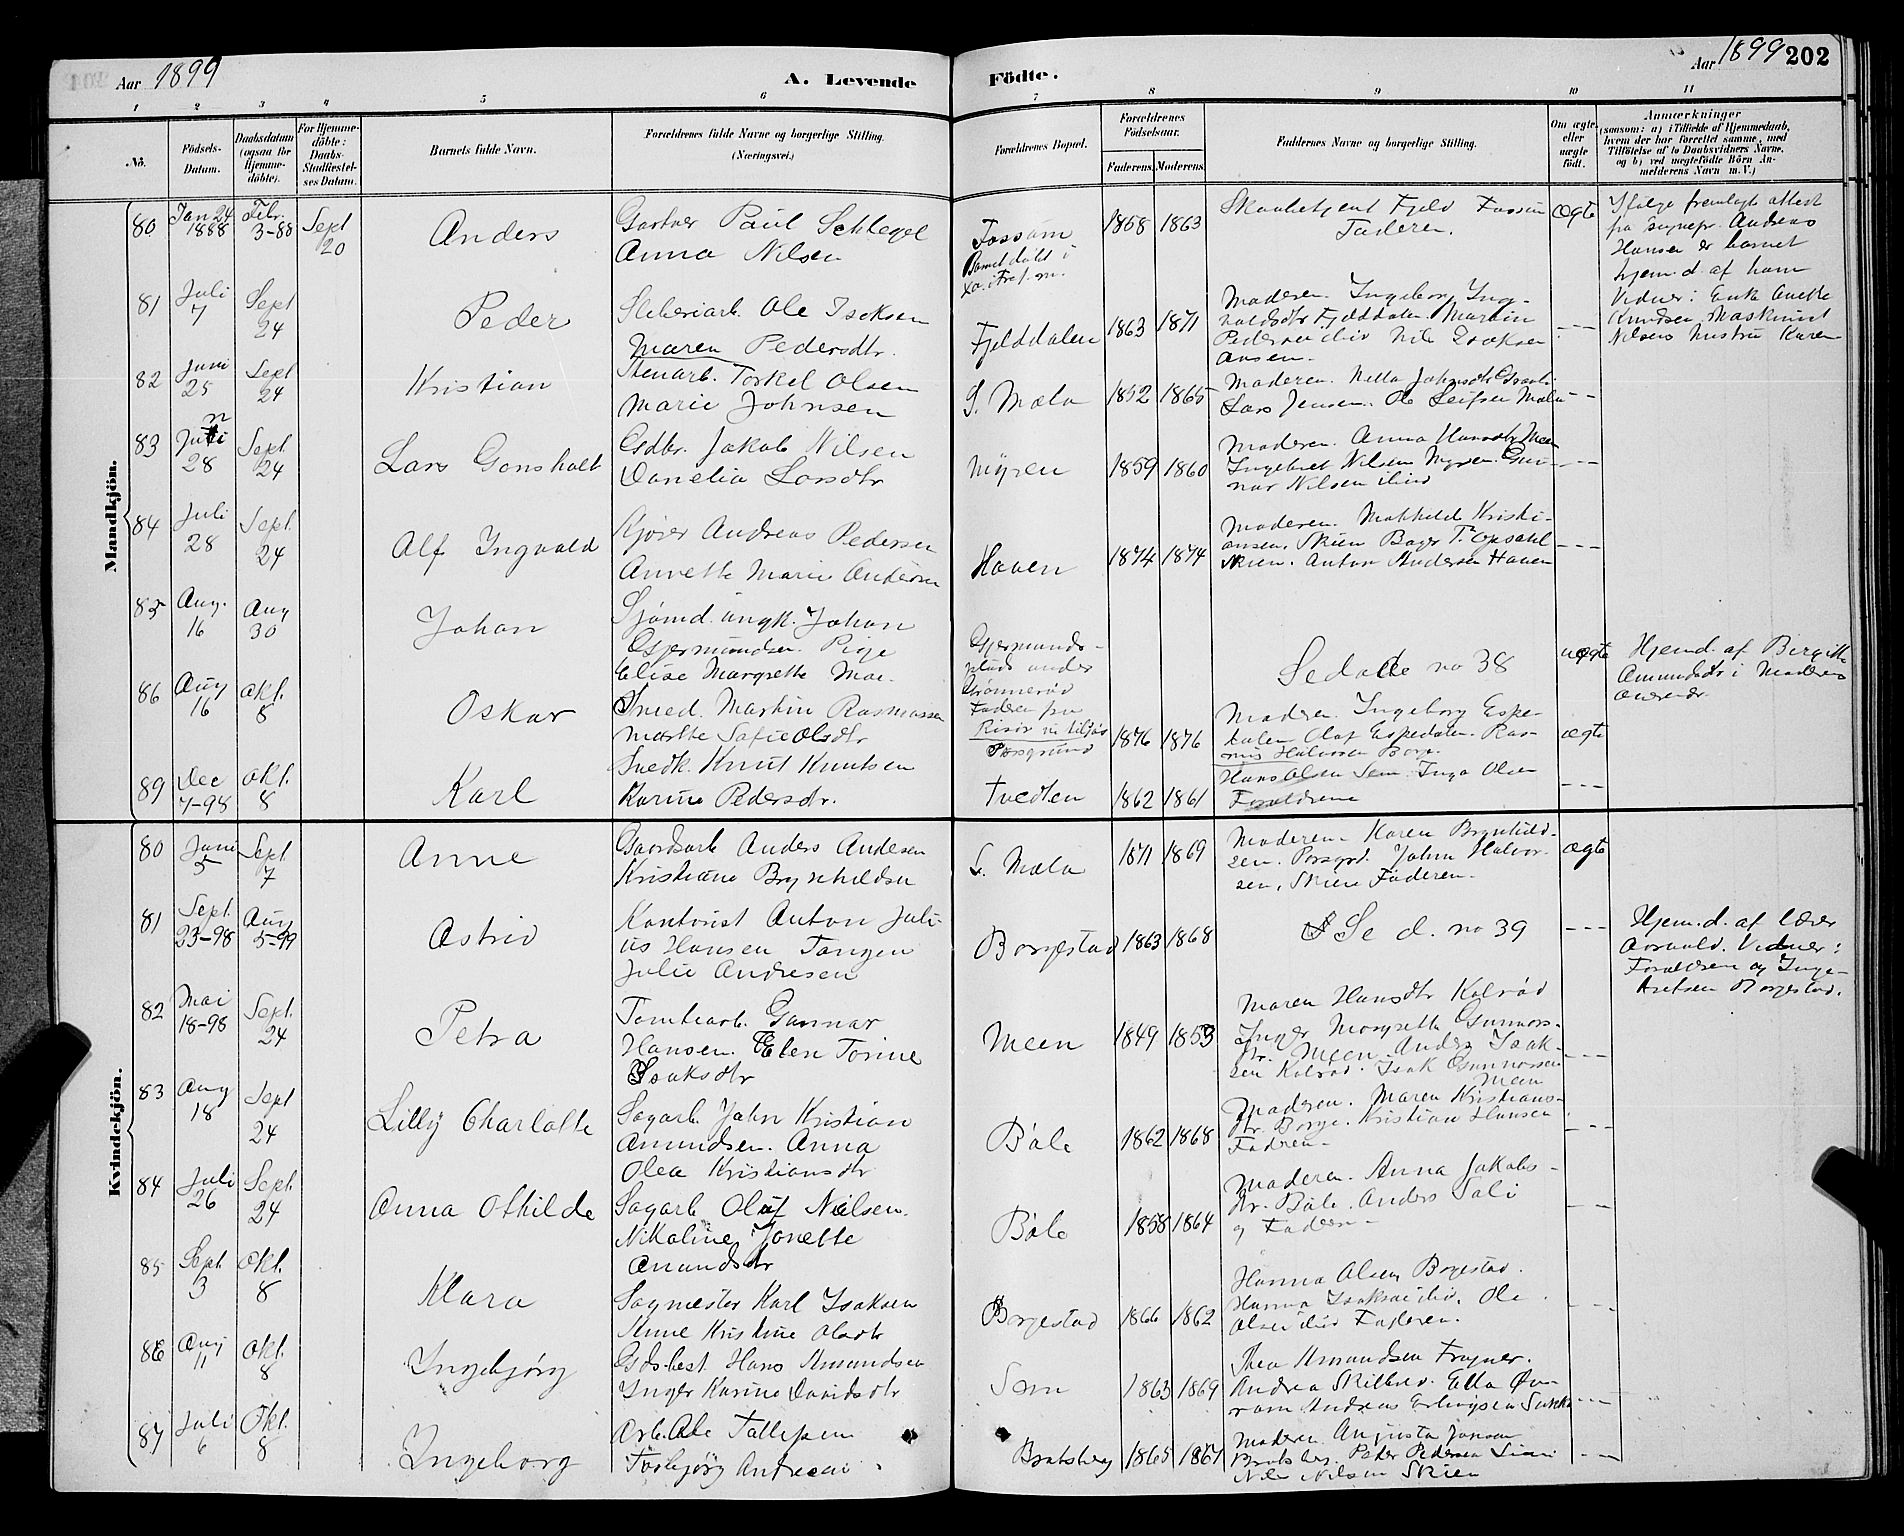 Aar 1899
A. Levende
Födte.
Aar 1899 202
1 2 3 4 5 6 7 8 9 10 11
No.
Födsels-
Datum.
Daabsdatum
(ogsaa for
Hjemme-
døbte).
For Hjemme-
döbte:
Daabs-
Stadfæstel-
ses Datum.
Barnets fulde Navn.
Forældrenes fulde Navne og borgerlige Stilling.
(Næringsvei.)
Forældrenes Bopæl.
Forældrenes
Födselsaar.
Faderens Moderens
Faddernes Navne og borgerlige Stilling.
Om ægte
eller
uægte
født.
Anmærkninger
(saasom: a) i Tilfælde af Hjemmedaab,
hvem der har forrettet samme, med
Tilföielse af to Daabsvidners Navne,
og b) ved uægtefødte Börn An-
melderens Navn m. V.)
Mandkjön.
80 Jan 24 1888 Febr. 3-88 Sept 20
Anders
Gartner Paul Schlegel
Anna Nilsen
Fossum
1858 1863
Faderen.
ægte
Ifølge fremlagt attest
fra sognepr. Andreas
Hansen er barnet
hjem.d. af ham
Vidner: Enke Anette
Knudsen, Maskinist
Nilsens hustru Karen
81 Juli 7 Sept 24
Peder
Ole Isaksen
Maren Pedersdtr.
Fjelddalen
1863 1871
Moderen. Ingeborg Ing-
valdsdtr Fjelddalen Martin
Pedersen ibid Nils Isaksen
82 Juni 25 Sept 24
Kristian
Stenarb. Torkel Olsen
Marie Johnsen
S. Mæla
1852 1865
Lars Jensen. Ole Leifsen Mæla
83 Juni 28 Sept. 24
Lars Gonsholt
Gdbr. Jakob Nilsen
Danelia Larsdtr
Myren
1859 1860
Moderen. Anna Hansdtr Meen
Ingebret Nilsen Myren. Gun-
nar Nilsen ibid
84 Juli 28 Sept. 24
Alf Ingvald
Kjører Andreas Pedersen
Annette Marie Andersen
Haven
1874 1874
Moderen. Mathilde Kristi-
ansen, Skien Bager T. Opsahl
Skien. Anton Andersen Haven
85 Aug. 16 Aug 30
Johan
Sjømd. ungk. Johan
Gjermundsen. Pige
Elise Margrethe Mar.
Gjermunds-
plads under
Grønnerød
Faderen fra
Risør
Se daale no 38
uægte
Hjemd. af Birgitte
Amundsdtr i Moderens
86 Aug 16 Okt. 8
Oskar
Smed. Martin Rasmussen
Marthe Sofie Olsdtr
Porsgrund
1876 1876
Moderen. Ingeborg Espe-
dalen Olaf Espedalen. Ras-
mus Halvorsen Borge.
ægte
89 Dec 7-98 Okt. 8
Karl
Snedk. Knut Knutsen
Karine Pedersdtr.
Tvedten
1862 1861
Hans Olsen Sem. Inga Olsen
Forældrene
Kvindekjön.
80 Juni 5 Sept 7
Anne
Gaardsarb Anders Andersen
Kristiane Brynhildsen
S. Mæla
1871 1869
Moderen. Karen Brynhild-
sen. Porsgrd. John Halvor-
sen, Skien Faderen.
ægte
81 Sept. 23-98 Aug 5-99
Astrid
Kontorist Anton Juli-
us Hansen Tangen
Julie Andresen
Borgestad
1863 1868
Se d. no 39
Hjem.d. af lærer
Aasvald. Vidner:
Forældrene og Inge-
Borgestad.
82 Mai 18-98 Sept. 24
Petra
Tomtearb. Gunnar
Hansen. Elen Torine
Isaksdtr
Meen
1849 1853
Maren Hansdtr Kolrød
Inger Margrethe Gunnars-
dtr. Meen. Anders Isak-
sen Kolrød. Isak Gunnarsen
Meen
83 Aug 18 Sept 24
Lilly Charlotte
Sagarb. John Kristian
Amundsen. Anna
Olea Kristiansdtr
Bøle
1862 1868
Moderen. Maren Kristians-
dtr. Borge. Kristian Hansen
Faderen.
84 Juli 26 Sept. 24
Anna Othilde
Sagarb Oluf Nielsen.
Nikoline Jonette
Amundsdtr
Bøle
1858 1864
Moderen. Anna Jakobs-
dtr. Bøle. Anders Sali
og Faderen
85 Sept. 3 Okt. 8
Klara
Sagmester Karl Isaksen
Anne Kristine Olsdtr
Borgestad
1866 1862
Hanna Olsen Borgestad.
Hanna Isaksen ibid. Ole
Olsen ibid Faderen.
86 Aug 11 Okt. 8
Ingebjørg
Gdsbest Hans Amundsen
Inger Karine Davidsdtr
Sem
1863 1869
Thea Amundsen Frogner.
87 Juli 6 Okt. 8
Ingeborg
Arb. Ole Tallefsen
Torbjørg Andresen
Bratsberg
1865 1867
Moderen. Augusta Jonsen
Bratsberg. Peder Pedersen
Nils Nilsen Skien